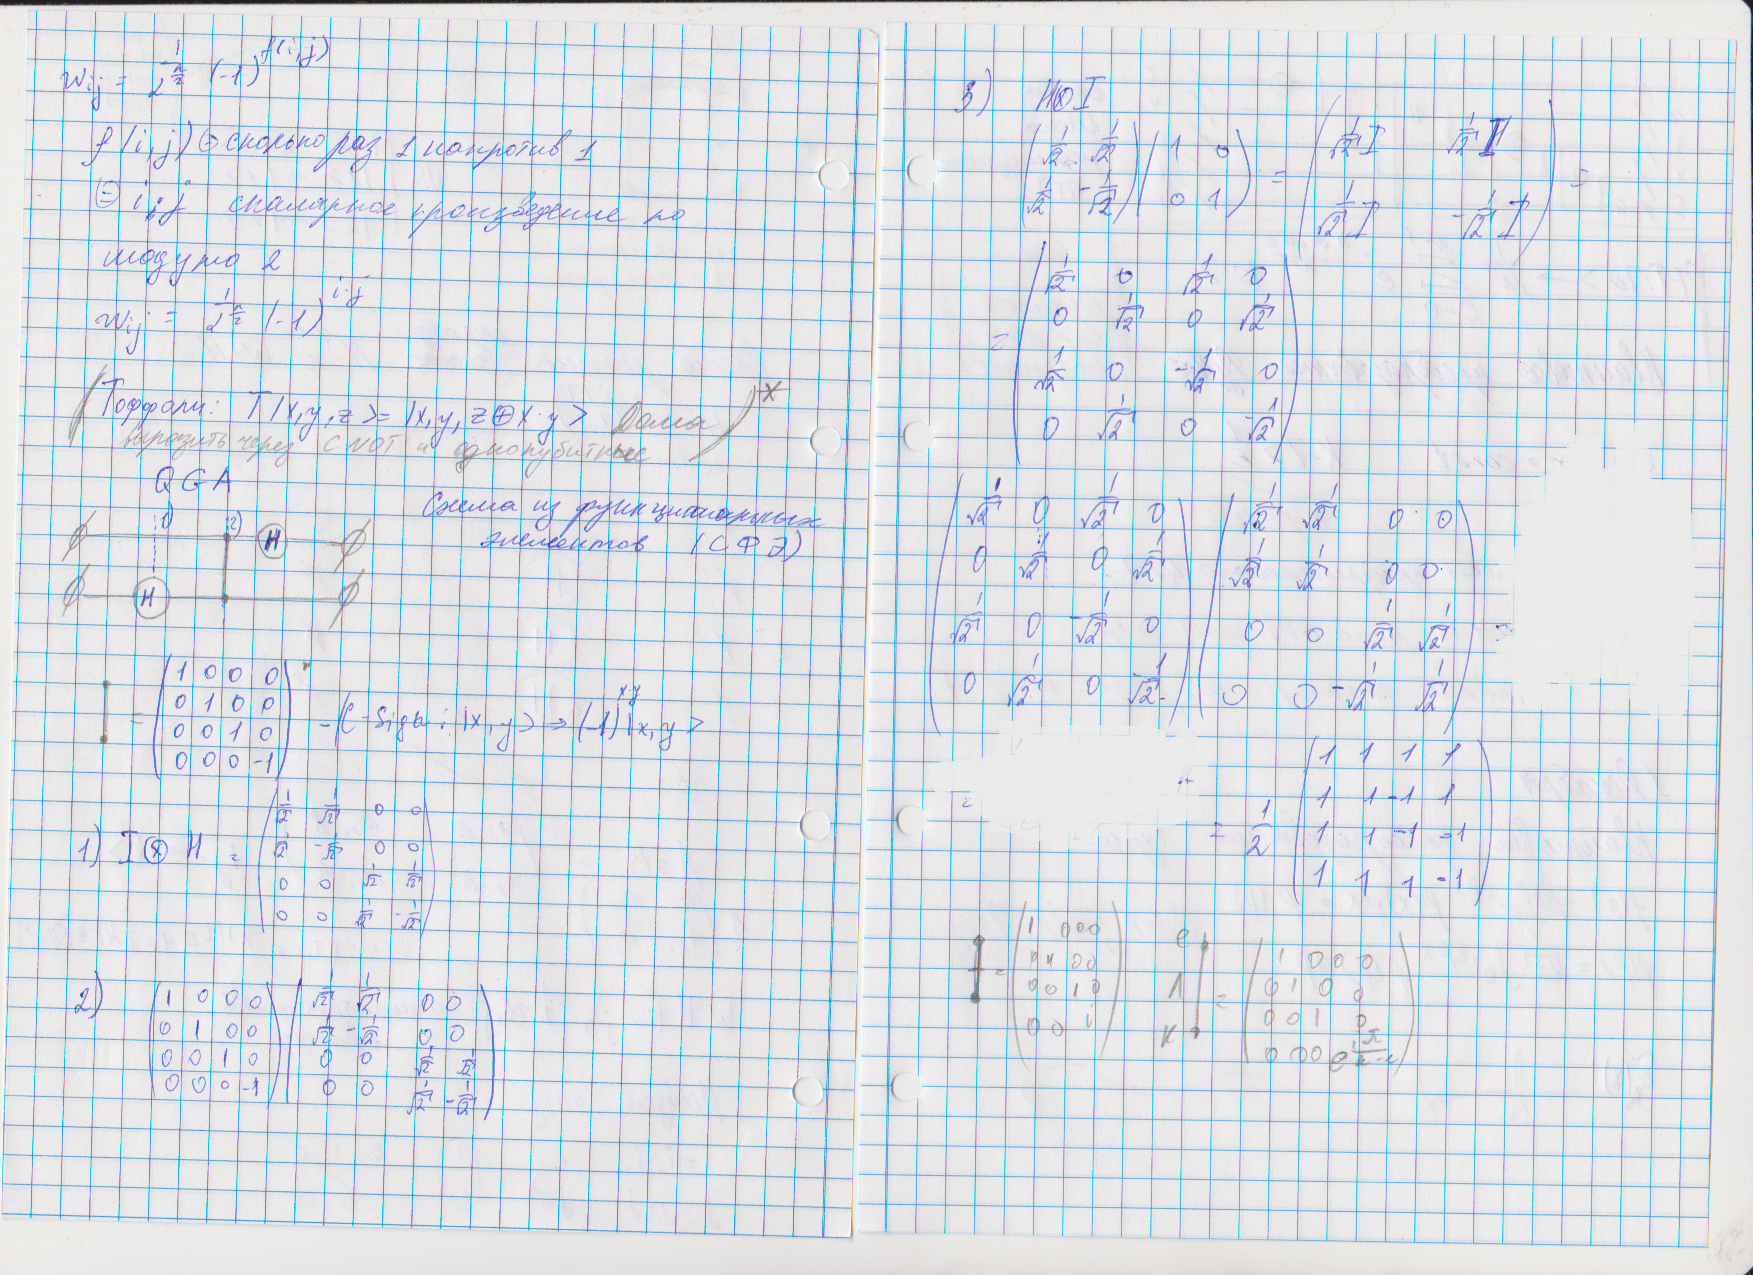 w_ij = 1/2^(n/2) (-1)^f(i,j)
f(i,j) ⊜ сколько раз 1 напротив 1
⊜ i·j скалярное произведение по
модулю 2
w_ij = 1/2^(n/2) (-1)^(i·j)
(Тоффоли: T|x,y,z>=|x,y,z⊕x·y> Дома)*
выразить через CNOT и однокубитные
QGA
Схема из функциональных
элементов (СФЭ)
1) 2) H
H
= (1 0 0 0
0 1 0 0
0 0 1 0
0 0 0 -1) - C-Sign: |x,y> → (-1)^(x·y) |x,y>
1) I⊗H = (1/√2 1/√2 0 0
1/√2 -1/√2 0 0
0 0 1/√2 1/√2
0 0 1/√2 -1/√2)
2) (1 0 0 0
0 1 0 0
0 0 1 0
0 0 0 -1) (1/√2 1/√2 0 0
1/√2 -1/√2 0 0
0 0 1/√2 1/√2
0 0 1/√2 -1/√2)
3) H⊗I
(1/√2 1/√2
1/√2 -1/√2) (1 0
0 1) = (1/√2 I 1/√2 I
1/√2 I -1/√2 I) =
= (1/√2 0 1/√2 0
0 1/√2 0 1/√2
1/√2 0 -1/√2 0
0 1/√2 0 -1/√2)
(1/√2 0 1/√2 0
0 1/√2 0 1/√2
1/√2 0 -1/√2 0
0 1/√2 0 -1/√2) (1/√2 1/√2 0 0
1/√2 1/√2 0 0
0 0 1/√2 1/√2
0 0 -1/√2 1/√2) =
= = 1/2 (1 1 1 1
1 1 -1 1
1 1 -1 -1
1 1 1 -1)
= (1 0 0 0
0 0
0 0 1 0
0 0 1)
= (1 0 0 0
0 1 0 0
0 0 1 0
0 0 0 e)